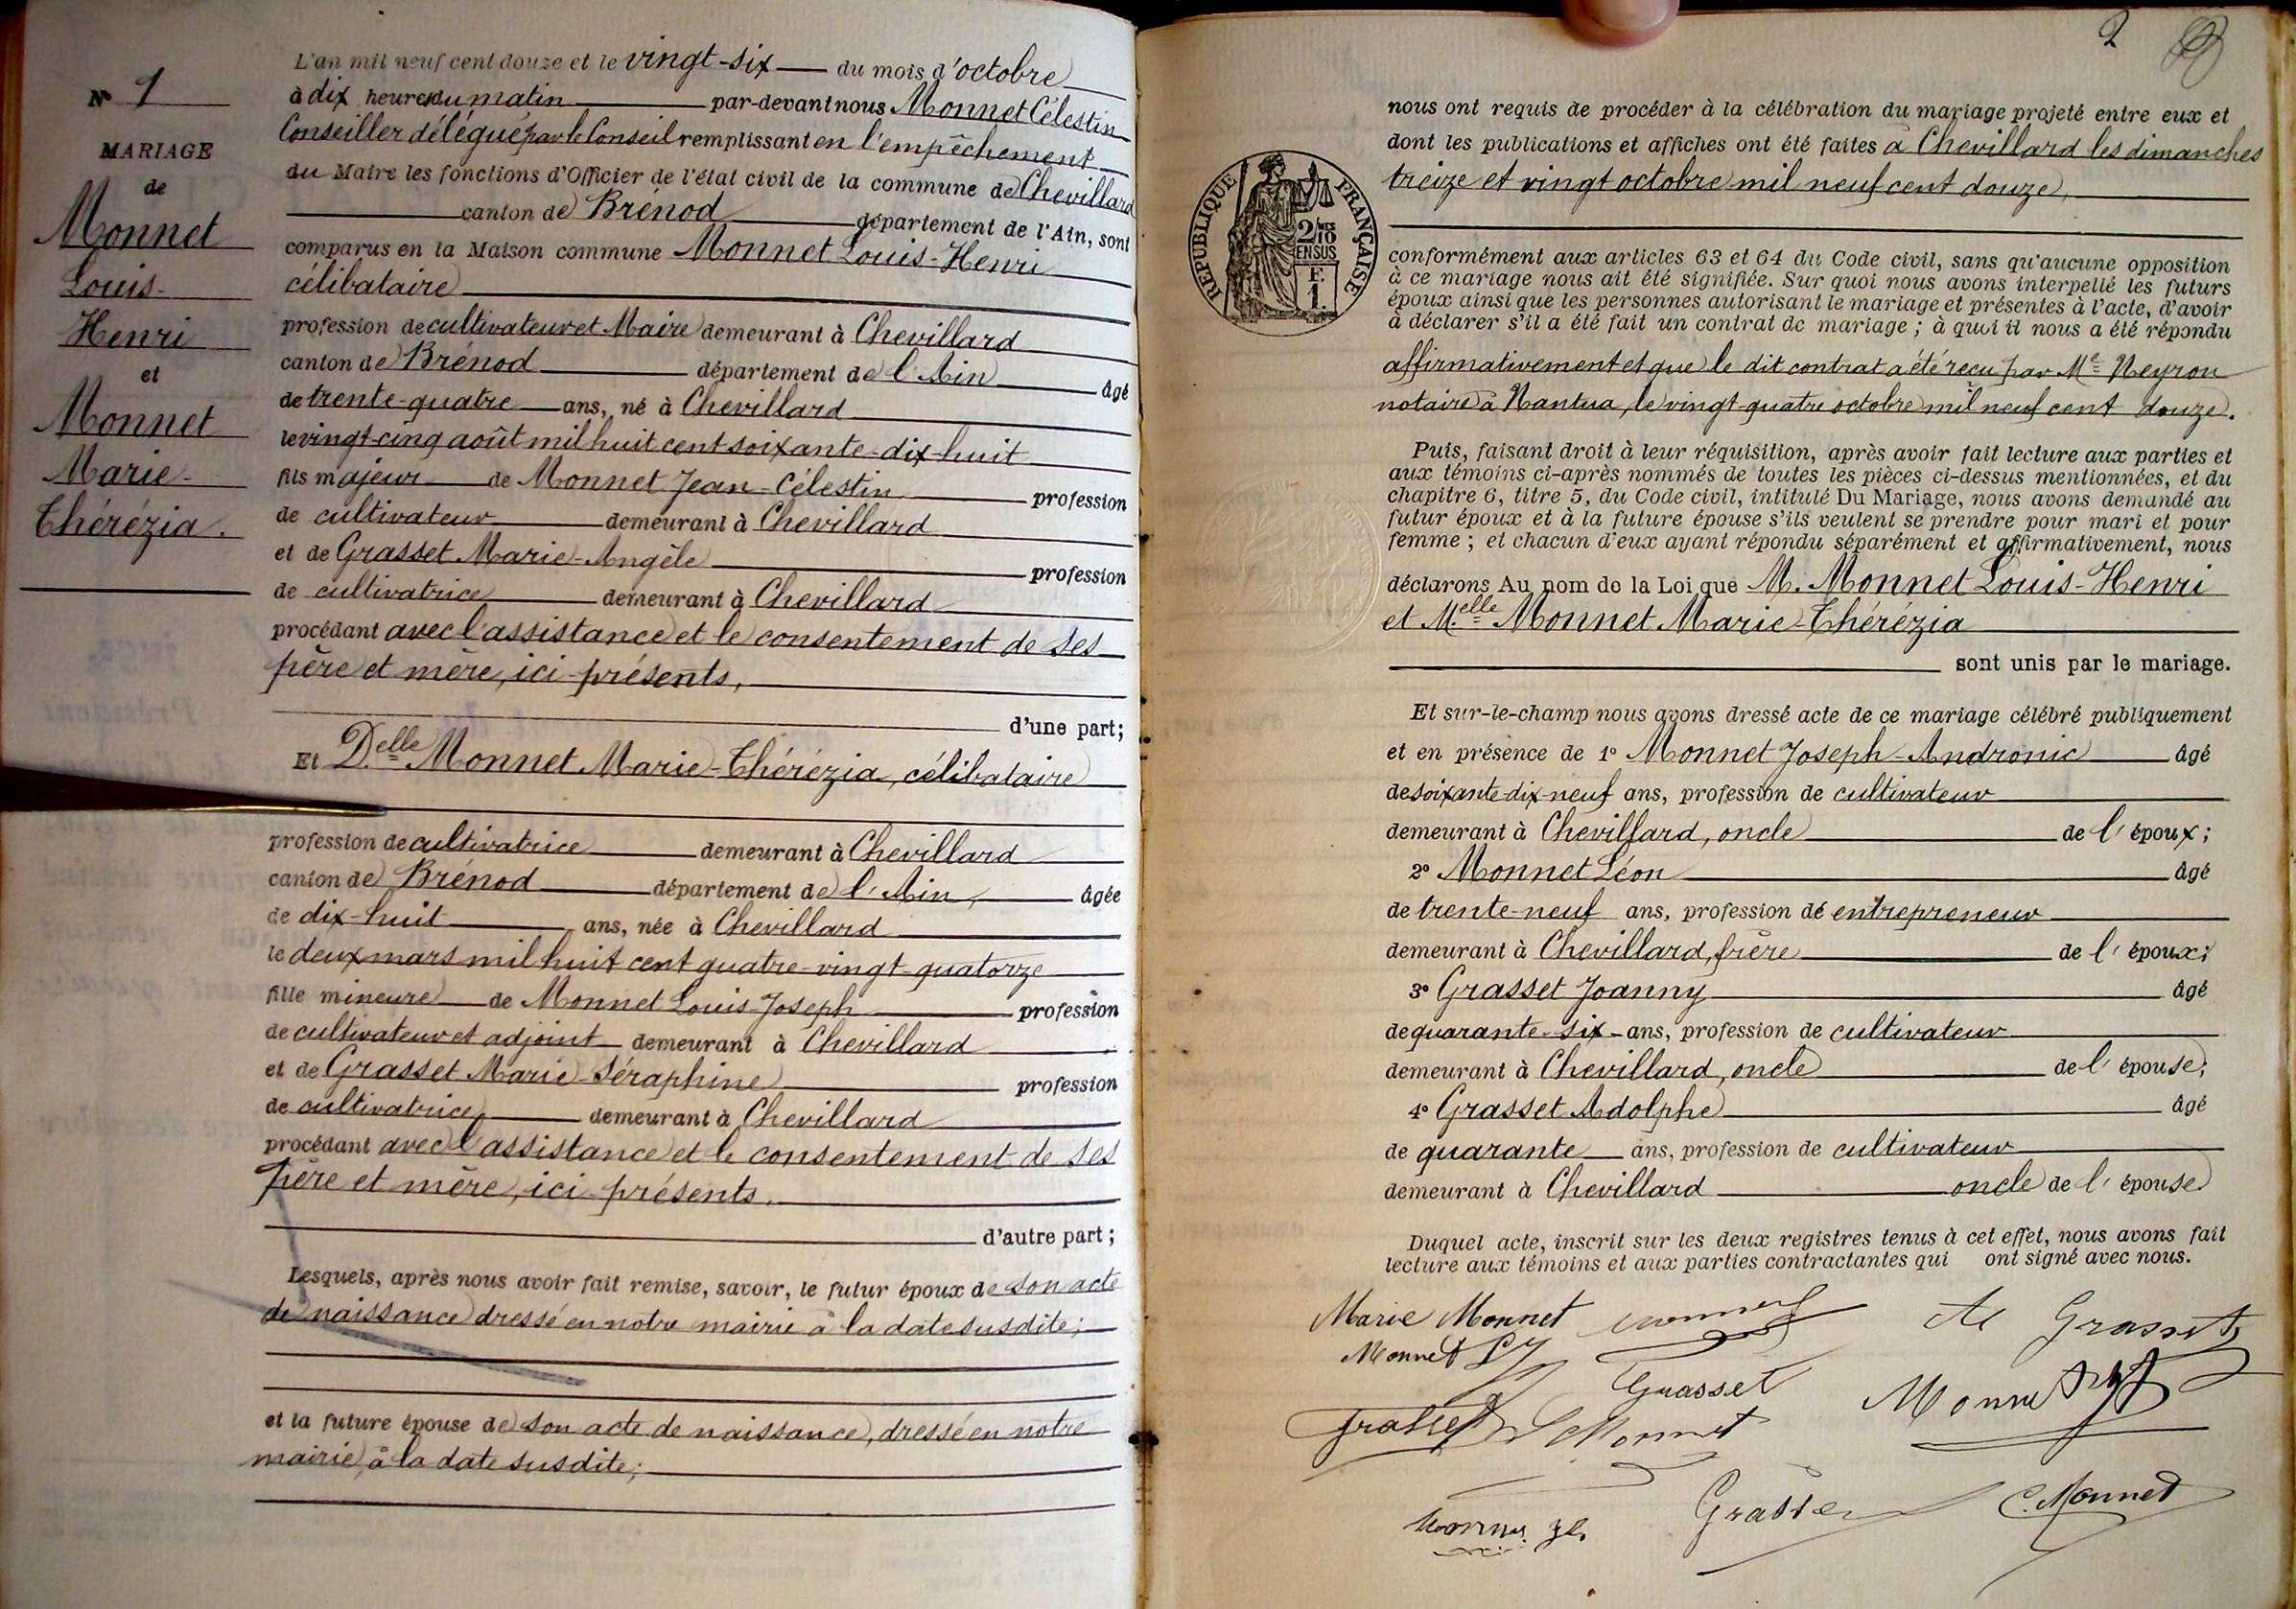 N° 1
MARIAGE
de
Monnet
Louis-
Henri
et
Monnet
Marie-
Thérézia.
L'an mil neuf cent douze et le vingt-six du mois d'octobre
à dix heures du matin par-devant nous Monnet Célestin
Conseiller délégué par le Conseil remplissant en l'empêchement
du Maire les fonctions d'Officier de l'état civil de la commune de Chevillard
canton de Brénod département de l'Ain, sont
comparus en la Maison commune Monnet Louis-Henri
célibataire
profession de cultivateur et Maire demeurant à Chevillard
canton de Brénod département de l'Ain âgé
de trente-quatre ans, né à Chevillard
le vingt-cinq août mil huit cent soixante-dix-huit
fils majeur de Monnet Jean-Célestin profession
de cultivateur demeurant à Chevillard
et de Grasset Marie-Angèle profession
de cultivatrice demeurant à Chevillard
procédant avec l'assistance et le consentement de ses
père et mère, ici présents,
d'une part;
Et D.elle Monnet Marie-Thérézia, célibataire
profession de cultivatrice demeurant à Chevillard
canton de Brénod département de l'Ain, âgée
de dix-huit ans, née à Chevillard
le deux mars mil huit cent quatre-vingt-quatorze
fille mineure de Monnet Louis-Joseph profession
de cultivateur et adjoint demeurant à Chevillard
et de Grasset Marie-Séraphine profession
de cultivatrice demeurant à Chevillard
procédant avec l'assistance et le consentement de ses
père et mère, ici présents.
d'autre part;
Lesquels, après nous avoir fait remise, savoir, le futur époux de son acte
de naissance dressé en notre mairie à la date susdite;
et la future épouse de son acte de naissance, dressé en notre
mairie, à la date susdite;
2
nous ont requis de procéder à la célébration du mariage projeté entre eux et
dont les publications et affiches ont été faites à Chevillard les dimanches
treize et vingt octobre mil neuf cent douze,
RÉPUBLIQUE FRANÇAISE
2/10
EN SUS
F.
1.
conformément aux articles 63 et 64 du Code civil, sans qu'aucune opposition
à ce mariage nous ait été signifiée. Sur quoi nous avons interpellé les futurs
époux ainsi que les personnes autorisant le mariage et présentes à l'acte, d'avoir
à déclarer s'il a été fait un contrat de mariage; à quoi il nous a été répondu
affirmativement et que le dit contrat a été reçu par Me Neyron
notaire à Nantua, le vingt-quatre octobre mil neuf cent douze.
Puis, faisant droit à leur réquisition, après avoir fait lecture aux parties et
aux témoins ci-après nommés de toutes les pièces ci-dessus mentionnées, et du
chapitre 6, titre 5, du Code civil, intitulé Du Mariage, nous avons demandé au
futur époux et à la future épouse s'ils veulent se prendre pour mari et pour
femme; et chacun d'eux ayant répondu séparément et affirmativement, nous
déclarons Au nom de la Loi que M. Monnet Louis-Henri
et M.elle Monnet Marie-Thérézia
sont unis par le mariage.
Et sur-le-champ nous avons dressé acte de ce mariage célébré publiquement
et en présence de 1° Monnet Joseph-Andronic âgé
de soixante-dix-neuf ans, profession de cultivateur
demeurant à Chevillard, oncle de l'époux;
2° Monnet Léon âgé
de trente-neuf ans, profession de entrepreneur
demeurant à Chevillard, frère de l'époux;
3° Grasset Joanny âgé
de quarante-six ans, profession de cultivateur
demeurant à Chevillard, oncle de l'épouse;
4° Grasset Adolphe âgé
de quarante ans, profession de cultivateur
demeurant à Chevillard oncle de l'épouse
Duquel acte, inscrit sur les deux registres tenus à cet effet, nous avons fait
lecture aux témoins et aux parties contractantes qui ont signé avec nous.
Marie Monnet Grasset
Monnet
Grasset Monnet
Grasset Monnet
Grasset C. Monnet